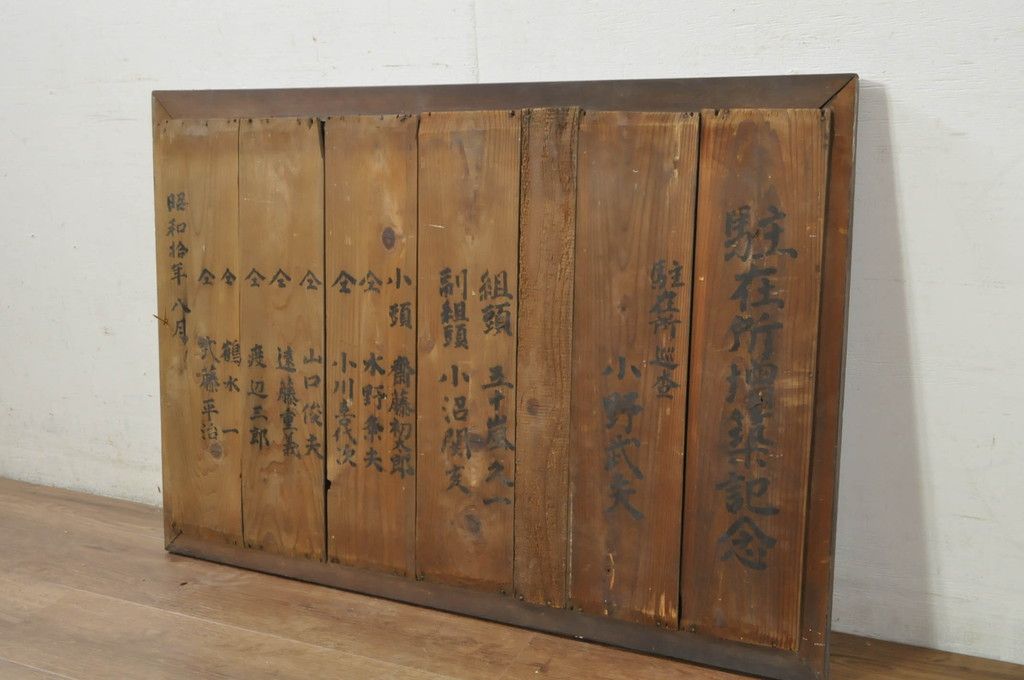 駐在所増築記念
駐在所巡査
小野武夫
組頭 五十嵐久一
副組頭 小沼関亥
小頭 齋藤初太郎
仝 水野衆夫
仝 小川喜代次
仝 山口俊夫
仝 遠藤重義
仝 渡辺三郎
仝 鶴水一
仝 武藤平治
昭和拾年八月